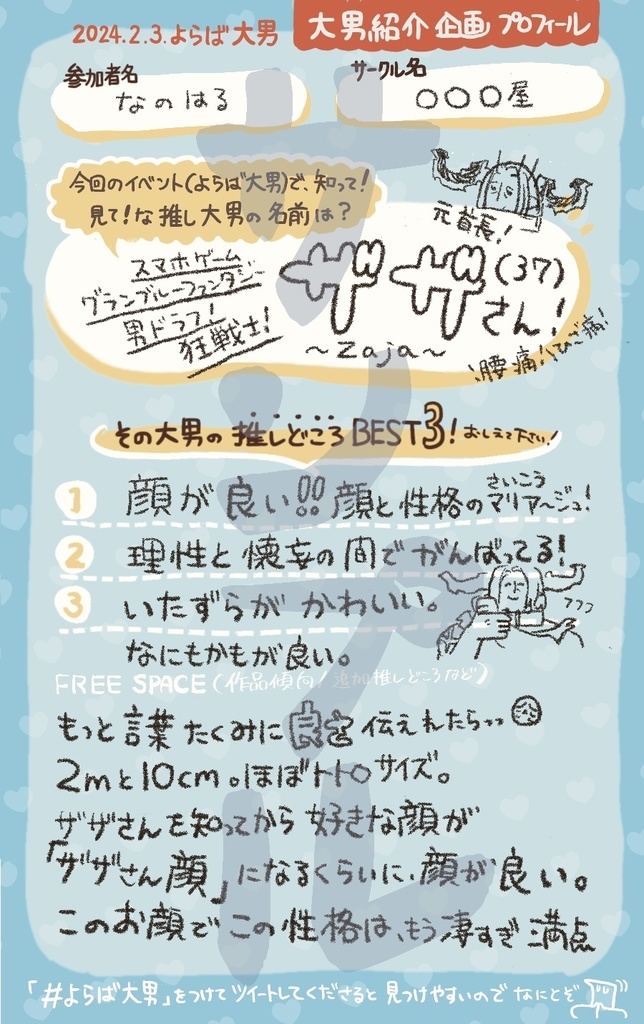 2024.2.3.よらば大男
大男紹介企画プロフィール
参加者名
なのはる
サークル名
○○○屋
今回のイベント(よらば大男)で、知って!
見て!な推し大男の名前は?
元首長!
スマホゲーム
グランブルーファンタジー
男ドラフ!
狂戦士!
ザザ(37)
さん!
~zaja~
腰痛!ひざ痛!
その大男の推しどころBEST3!おしえて下さい!
1 顔が良い!!顔と性格のマリアージュ!
さいこう
2 理性と懐妄の間でがんばってる!
3 いたずらがかわいい。
フフフ
なにもかもが良い。
FREE SPACE(作品傾向/追加推しどころなど)
もっと言葉たくみに良さ伝えれたらッッ
2mと10cm。ほぼトトロサイズ。
ザザさんを知ってから好きな顔が
「ザザさん顔」になるくらいに、顔が良い。
このお顔でこの性格は、もう凄すぎ満点
「#よらば大男」をつけてツイートしてくださると見つけやすいのでなにとぞ
サンプル